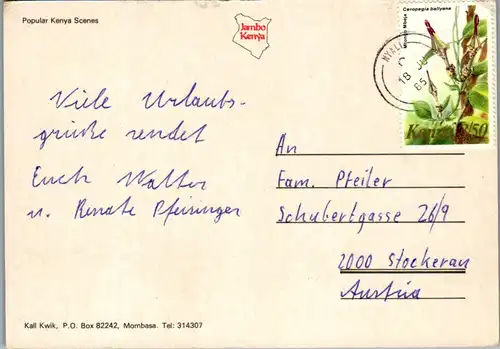 Popular Kenya Scenes
Jambo
Kenya
Ceropegia ballyana
Kenya 5/50
NYALI
18 JU
85
Viele Urlaubs-
grüße sendet
Euch Walter
u. Renate Pfeisinger
An
Fam. Pfeiler
Schubertgasse 26/9
2000 Stockerau
Austria
Kall Kwik, P.O. Box 82242, Mombasa. Tel: 314307